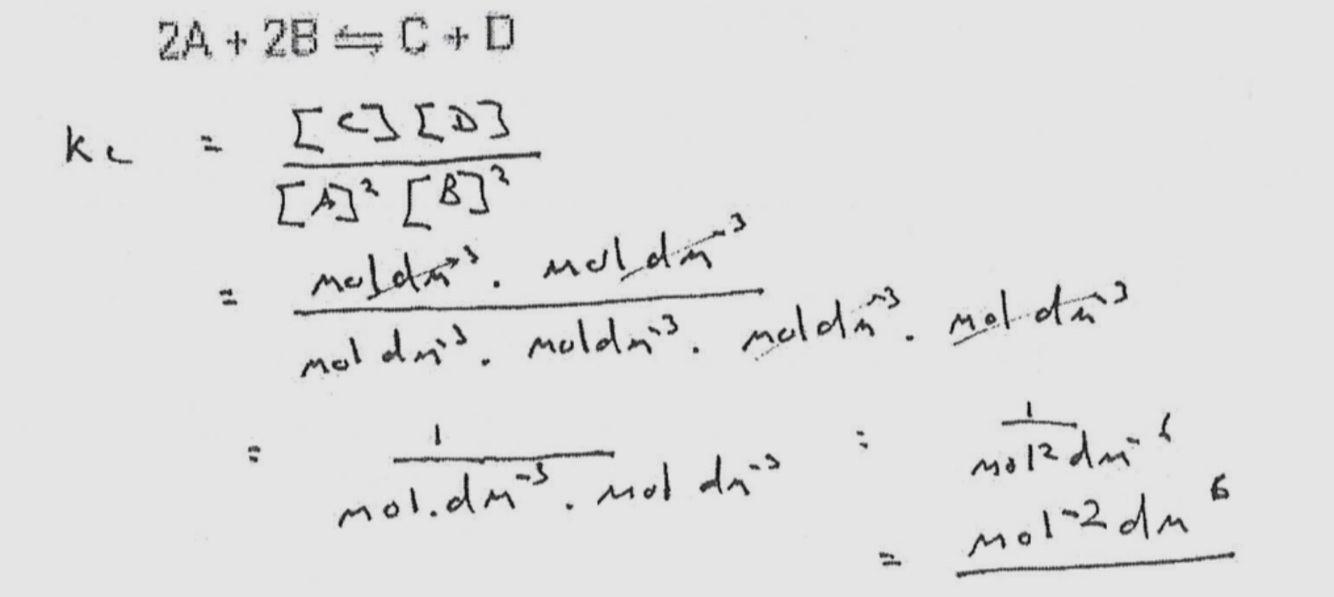 2A + 2B ⇋ C + D
kc = [C] [D] / [A]² [B]²
= mol dm⁻³ . mol dm⁻³ / mol dm⁻³ . mol dm⁻³ . mol dm⁻³ . mol dm⁻³
= 1 / mol . dm⁻³ . mol dm⁻³ = 1 / mol² dm⁻⁶
= mol⁻² dm⁶